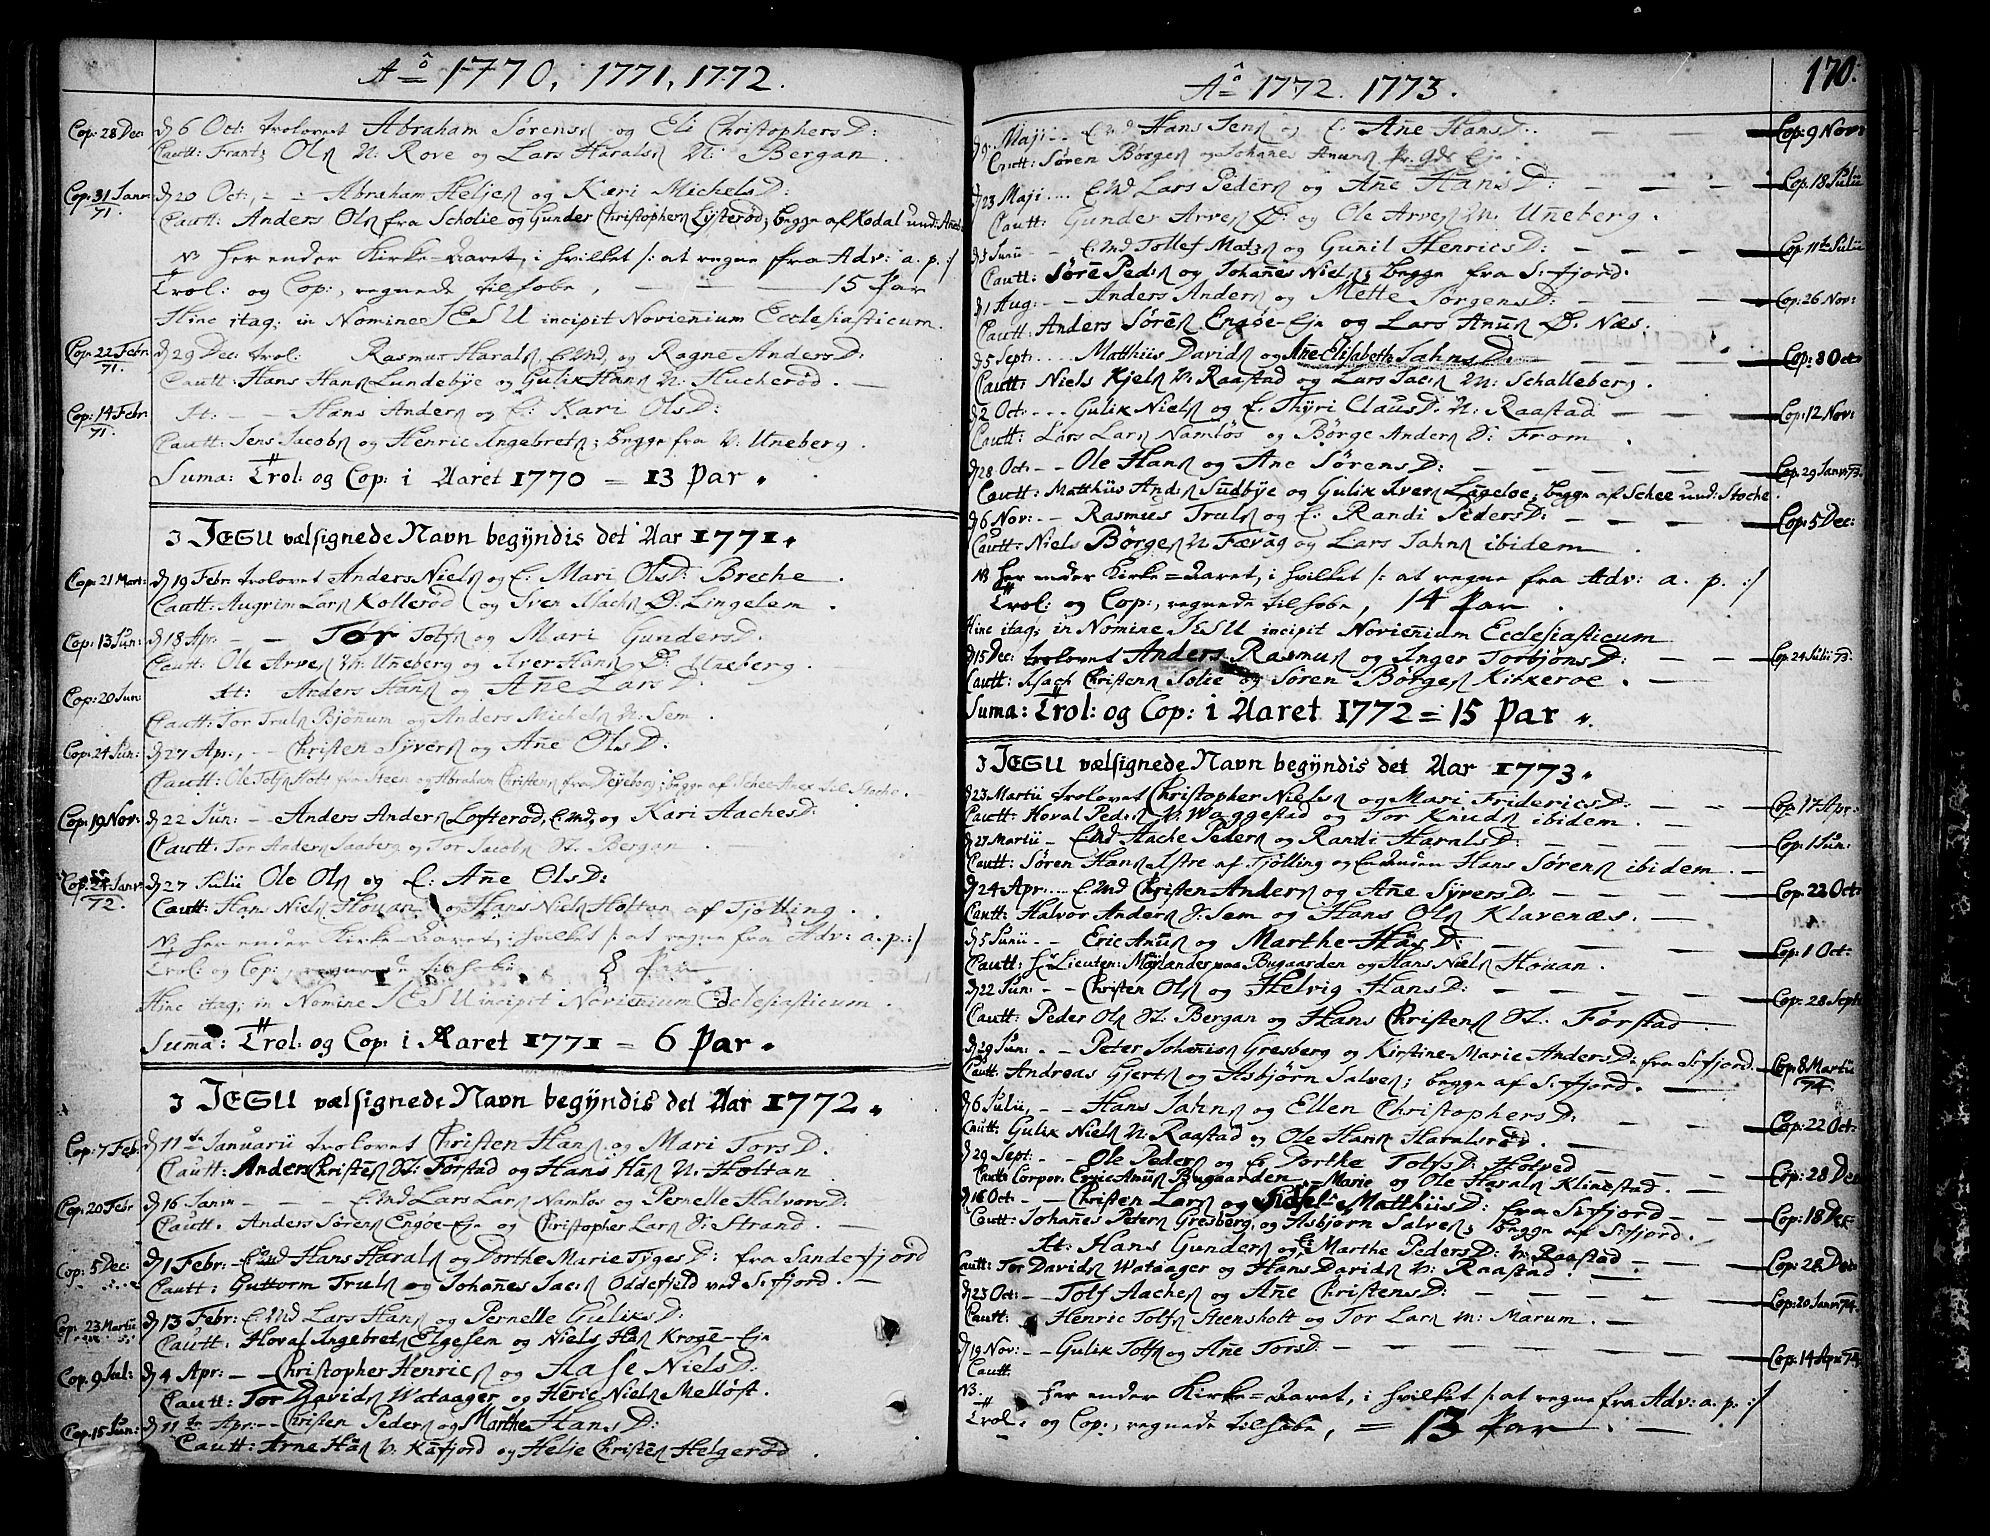 Aô 1770, 1771, 1772.
Cop: 28 Dec: d 6 Oct: trolovet Abraham Sørens: og Eli ChristophersD:
Cautt: Frantz Ols: N: Rove og Lars Harals: N: Bergan.
Cop: 31 Janr: 71. d 20 Oct: - - Abraham Heljes: og Kari MichelsD:
Cautt: Anders Ols: fra Scholie og Gunder Christophers: Lysterød; begge af Kodal und:
NB her ender Kirke-Aaret, i hvilket /: at regne fra Adv: a. p: :/
Trol: og Cop:, regnede tilhobe, — — 15 Par
Hinc itaq; in Nomine JESU incipit Noviennium Ecclesiasticum.
Cop: 22 Febr: 71. d 29 Dec: trol: Rasmus Harals: EMd, og Ragne AndersD:
Cautt: Hans Hans: Lundebye og Gulik Hans: N: Hucherød. —
Cop: 14 Febr: 71. It: - - Hans Anders: og E: Kari OlsD:
Cautt: Jens Jacobs: og Henric Ingebrets; begge fra N: Uneberg.
Suma: Trol: og Cop: i Aaret 1770 = 13 Par.
I JESU vælsignede Navn begÿndis det Aar 1771.
Cop: 21 Mart: d 19 Febr: trolovet Anders Niels: og E: Mari OlsD: Breche.
Cautt: Augrim Lars: Kollerød og Sven Machs: D: Lingelem.
Cop: 13 Jun: d 18 Apr: - - Tor Tolfs: og Mari GundersD.
Cautt: Ole Arves: N: Uneberg og Iver Hans: D: Uneberg.
Cop: 20 Jun: It: Anders Hans: og Anne LarsD:
Cautt: Tor Truls: Bjønum og Anders Michels: N: Sem.
Cop: 24 Jun: d 27 Apr:, - - Christen Syvers: og Ane OlsD.
Cautt: Ole Tolfs: Hots fra Steen og Abraham Christens: fra ; begge af Schee-Anex til Stoche.
Cop: 19 Nov: d 22 Jun: - Anders Anders: Lofterød, EMd, og Kari AachesD:
Cautt: Tor Anders: Saaberg og Tor Jacobs: St: Bergan. —
Cop: 24 Janr: 72. d 27 Julii Ole Ols: og E: Ane OlsD:
Cautt: Hans Niels: Houan og Hans Niels: Holtan af Tjølling.
NB her ender Kirke-Aaret, i hvilket /: at regne fra Adv: a. p: :/
Trol: og Cop: regnede tilhobe, 8 Par
Hinc itaq; in Nomine JESU incipit Noviennium Ecclesiasticum.
Suma: Trol: og Cop: i Aaret 1771 = 6 Par.
I JESU vælsignede Navn begÿndis det Aar 1772.
Cop: 7 Feb: d 11te Januarii trolovet Christen Hans: og Mari TorsD.
Cautt: Anders Christens: St: Førstad og Hans Has: N: Holtan.
Cop: 20 Febr d 16 Janr: - - EMd Lars Lars: Namløs og Pernelle HalvorsD:
Cautt. Anders Sørens: Engøe-Eje og Christopher Lars: D: Strand. —
Cop: 5 Dec: d 1 Febr: - EMd Hans Harals: og Dorthe Marie TygesD: fra Sandefjord
Cautt: Guttorm Truls: og Johanes Jacs: Oddefjeld ved S:fjord. —
Cop: 23 Martii d 13 Febr: EMd Lars Hans: og Pernelle GuliksD:
Cautt: Hoval Ingebrets: Elgesem og Niels Has: Kroge-Eje
Cop: 9 Jul: d 4 Apr: - - Christopher Henrics: og Aase NielsD:
Cautt: Tor Davids: Wataager og Henric Niels: Melløst.
Cop: 15 Jun: d 11te Apr: - - Christen Peders: og Marthe HansD:
Cautt: Arne Has: N: Kafjord og Helje Christens: Helgerød.
Aô 1772. 1773.
170.
d 9 Maji - - EMd Hans Jens: og E: Ane HansD: — — Cop: 9 Nov:
Cautt: Søren Børges: og Johanes Anuns: Pr: gds Eje.
d 23 Maji .... EMd Lars Peders: og Ane HansD: — — Cop: 18 Julii
Cautt: Gunder Arves: D: og Ole Arves: N: Uneberg.
d 3 Junii - EMd Tollef Matzs: og Gunil HenricsD: — — Cop: 11te Julii
Cautt: Søre Peds: og Johanes Niels; begge fra S:fjord.
d 1 Aug: - - Anders Anders: og Mette JørgensD: — — Cop: 26 Nov:
Cautt: Anders Sørens: Engøe-Eje og Lars Anuns: D: Næs.
d 5 Sept: .... Matthiis Davids: og Ane Elisabeth JahnsD: — Cop: 8 Oct:
Cautt: Niels Kjels: N: Raastad og Lars Jacs: N: Schalleberg.
d 2 Oct: .... Gulik Niels: og E: Thyri ClausD. N: Raastad — — Cop: 12 Nov:
Cautt: Lars Lars: Namløs og Børge Anders: D: From.
d 28 Oct: - - Ole Hans: og Ane SørensD: — — Cop: 29 Janr: 73.
Cautt: Matthiis Ands: Sudbye og Gulik Ivers: Lageløe; begge af Schee und: Stoche.
d 6 Nov: - - Rasmus Truls: og E: Randi PedersD: — — Cop: 5 Dec:
Cautt: Niels Børges: N: Færvag og Lars Jahns: ibidem.
NB her ender Kirke=Aaret, i hvilket /: at regne fra Adv: a. p. :/
Trol: og Cop:, regnede tilhobe, 14 Par.
Hinc itaq; in Nomine JESU incipit Noviennium Ecclesiasticum
d 15 Dec: trolovet Anders Rasmus: og Inger TorbjønsD: — — Cop: 24 Julii 73.
Cautt: Isach Christens: Jolie og Søren Børges: Kirkerøe. —
Suma: Trol: og Cop: i Aaret 1772 = 15 Par.
I JESU vælsignede Navn begÿndis det Aar 1773.
d 23 Martii trolovet Christopher Niels: og Mari FridericsD: — — Cop: 17 Apr:
Cautt: Hoval Peds: N: Waggestad og Tor Knuds: ibidem. —
d 27 Martii - EMd Aache Peders: og Randi HaralsD: — — Cop: 1 Jun:
Cautt: Søren Hans: Istre af Tjølling og Hans Sørens: ibidem. —
d 24 Apr: .... EMd Christen Anders: og Ane SyversD: — — Cop: 22 Oct:
Cautt: Halvor Anders: D: Sem og Hans Ols: Klavenæs. —
d 5 Junii - - Eric Anuns: og Marthe HasD: — — Cop: 1 Oct:
Cautt: Hr Lieuten: Møÿlander paa Bugaarden og Hans Niels: Houan.
d 22 Jun: - - Christen Ols: og Helvig HansD: — — Cop: 28 Sept:
Cautt: Peder Ols: St: Bergan og Hans Christens: St: Førstad.
d 29 Jun: - - Peter Johanis: Gresberg og Kirstine Marie AndersD: fra S:fjord. Cop: 8 Martii 74.
Cautt: Andreas Gjerts: og Asbjørn Salves; begge af S:fjord. —
d 6 Julii, - - Hans Jahns: og Ellen ChristophersD: — — Cop: 22 Oct:
Cautt: Gulik Niels: N: Raastad og Ole Hans: Haralsrød. —
d 29 Sept: - - Ole Peders: og E: Dorthe TolfsD: Hotved — Cop: 28 Dec:
Cautt: Corpor: Eric Anuns: Bugaarden og Ole Harals: Klinestad. —
d 16 Oct: - - Christen Lars: og Sidsele Marie MatthiisD: fra S:fjord — Cop: 18 Dec:
Cautt: Johanes Peters: Gresberg, og Asbjørn Salves; begge af S:fjord.
It: Hans Gunders: og E: Marthe PedersD: N: Raastad — Cop: 28 Dec:
Cautt: Tor Davids: Wataager og Hans Davids: N: Raastad. —
d 23 Oct: - Tolf Aaches: og Ane ChristensD: — — Cop: 20 Janr: 74.
Cautt: Henric Tolfs: Steensholt og Tor Lars: M: Marum. —
d 19 Nov: - - Gulik Tolfs: og Ane TorsD: — — Cop: 14 Apr: 74.
Cautt
NB. her ender Kirke=Aaret, i hvilket /: at regne fra Adv: a. p. :/
Trol: og Cop:, regnede tilhobe, = 13 Par. —